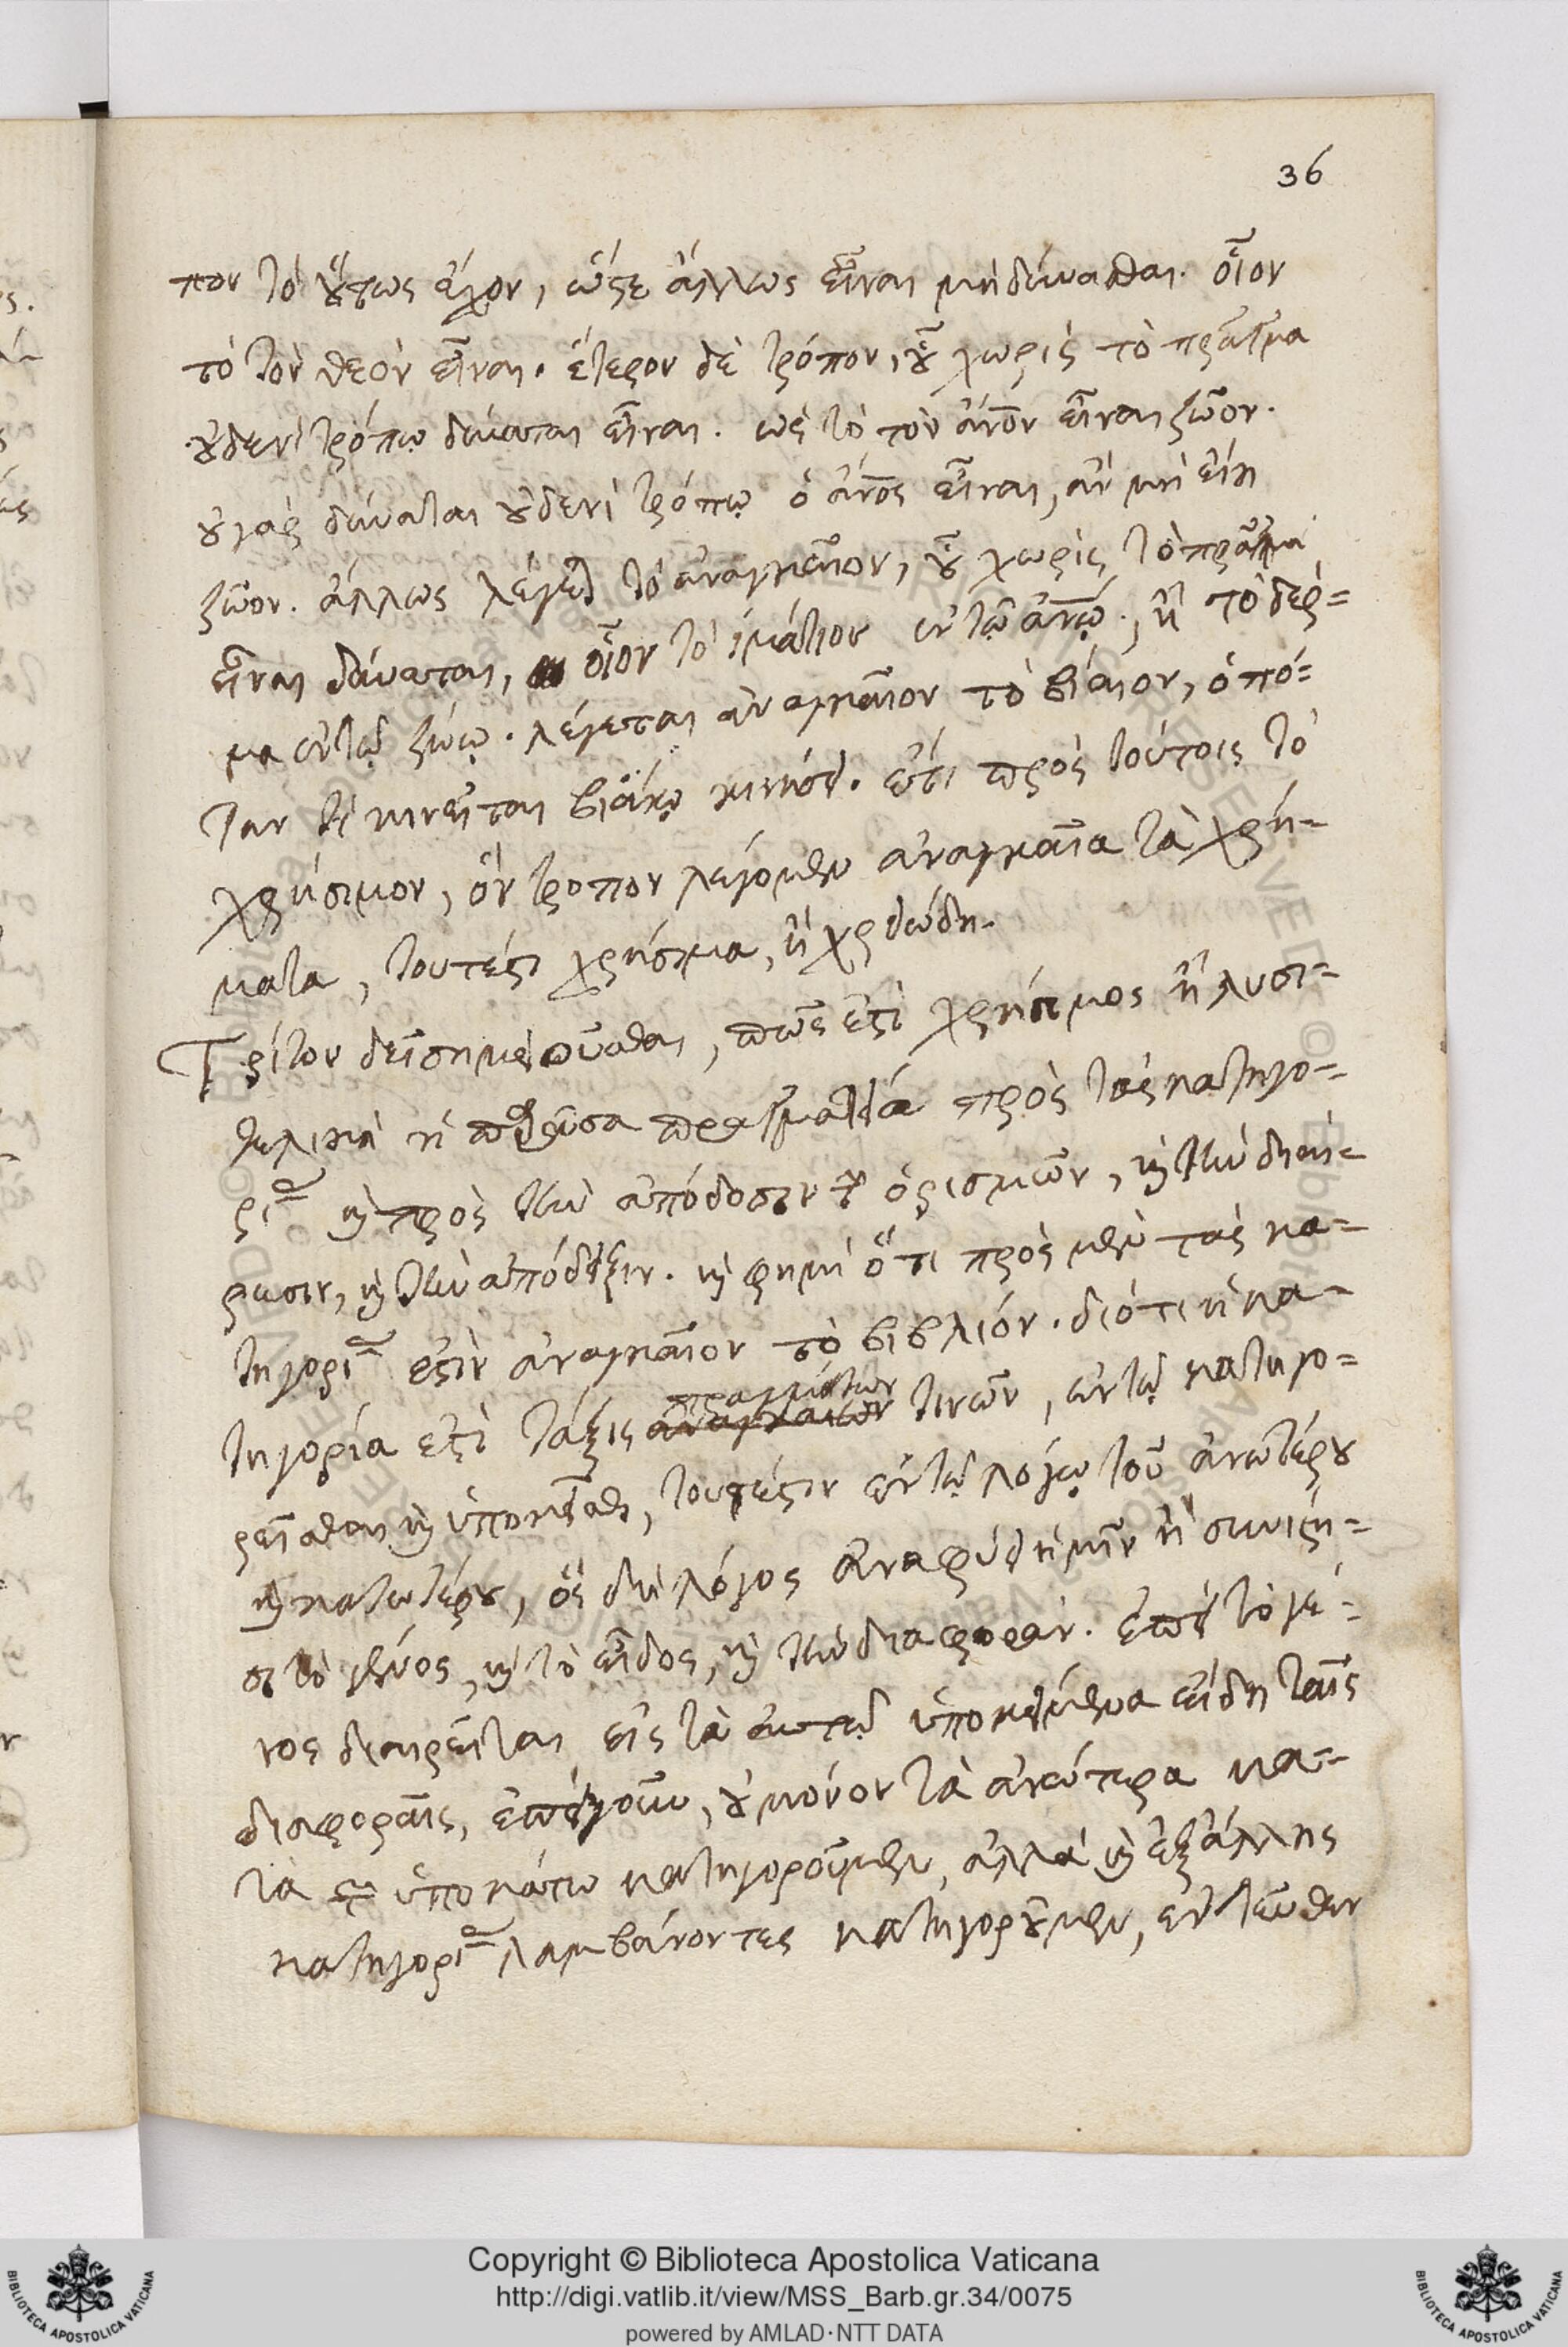 36
πον τὸ οὕτως ἔχον, ὥστε ἄλλως εἶναι μὴ δύνασθαι. οἷον
τὸ τὸν θεὸν εἶναι. ἕτερον δὲ τρόπον, οὗ χωρὶς τὸ πρᾶγμα
οὐδενὶ τρόπῳ δύναται εἶναι. ὡς τὸ τὸν ἄνον εἶναι ζῶον.
οὐ γὰρ δύναται οὐδενὶ τρόπῳ ὁ ἄνος εἶναι, ἂν μὴ εἴη
ζῶον. ἄλλως λέγεται τὸ ἀναγκαῖον, οὗ χωρὶς τὸ πρᾶγμα
εἶναι δύναται, οἷον τὸ ἱμάτιον ἐν τῷ ἀνῳ, ἢ τὸ δέρ=
μα ἐν τῷ ζώῳ. λέγεται ἀναγκαῖον τὸ βίαιον, ὁπό=
ταν τὶ κινεῖται βιαίῳ κινήσει. ἔτι πρὸς τούτοις τὸ
χρήσιμον, ὃν τρόπον λέγομεν ἀναγκαῖα τὰ χρή=
ματα, τουτέστι χρήσιμα, ἢ χρειώδη.
Τρίτον δεῖ σημειοῦσθαι, πῶς ἐστὶ χρήσιμος ἢ λυσι=
τελικὴ ἡ παροῦσα πραγματεία πρὸς τὰς κατηγο=
ρίας καὶ πρὸς τὴν ἀπόδοσιν τῶν ὁρισμῶν, καὶ τὴν διαί=
ρεσιν, καὶ τὴν ἀπόδειξιν. καὶ φημὶ ὅτι πρὸς μὲν τὰς κα=
τηγορίας ἐστὶν ἀναγκαῖον τὸ βιβλίον. διότι ἡ κα=
τηγορία ἐστὶ τάξις ἀναγκαίων πραγμάτων τινῶν, ἐν τῷ κατηγο=
ρεῖσθαι καὶ ὑποκεῖσθαι, τουτέστιν ἐν τῷ λόγῳ τοῦ ἀνωτέρου
καὶ κατωτέρου, ὃς δὴ λόγος ἀναφύει ἡμῖν ἢ συνιστή=
σι τὸ γένος, καὶ τὸ εἶδος, καὶ τὴν διαφοράν. ἐπεὶ τὸ γέ=
νος διαιρεῖται εἰς τὰ αὐτῷ ὑποκείμενα εἴδη ταῖς
διαφοραῖς, ἐπεὶ γοῦν, οὐ μόνον τὰ ἀνώτερα κα=
τὰ τῶν ὑποκάτω κατηγοροῦμεν, ἀλλὰ καὶ ἐξ ἄλλης
κατηγορίας λαμβάνοντες κατηγοροῦμεν, ἐντεῦθεν
Copyright © Biblioteca Apostolica Vaticana
http://digi.vatlib.it/view/MSS_Barb.gr.34/0075
powered by AMLAD·NTT DATA
BIBLIOTECA APOSTOLICA VATICANA
BIBLIOTECA APOSTOLICA VATICANA